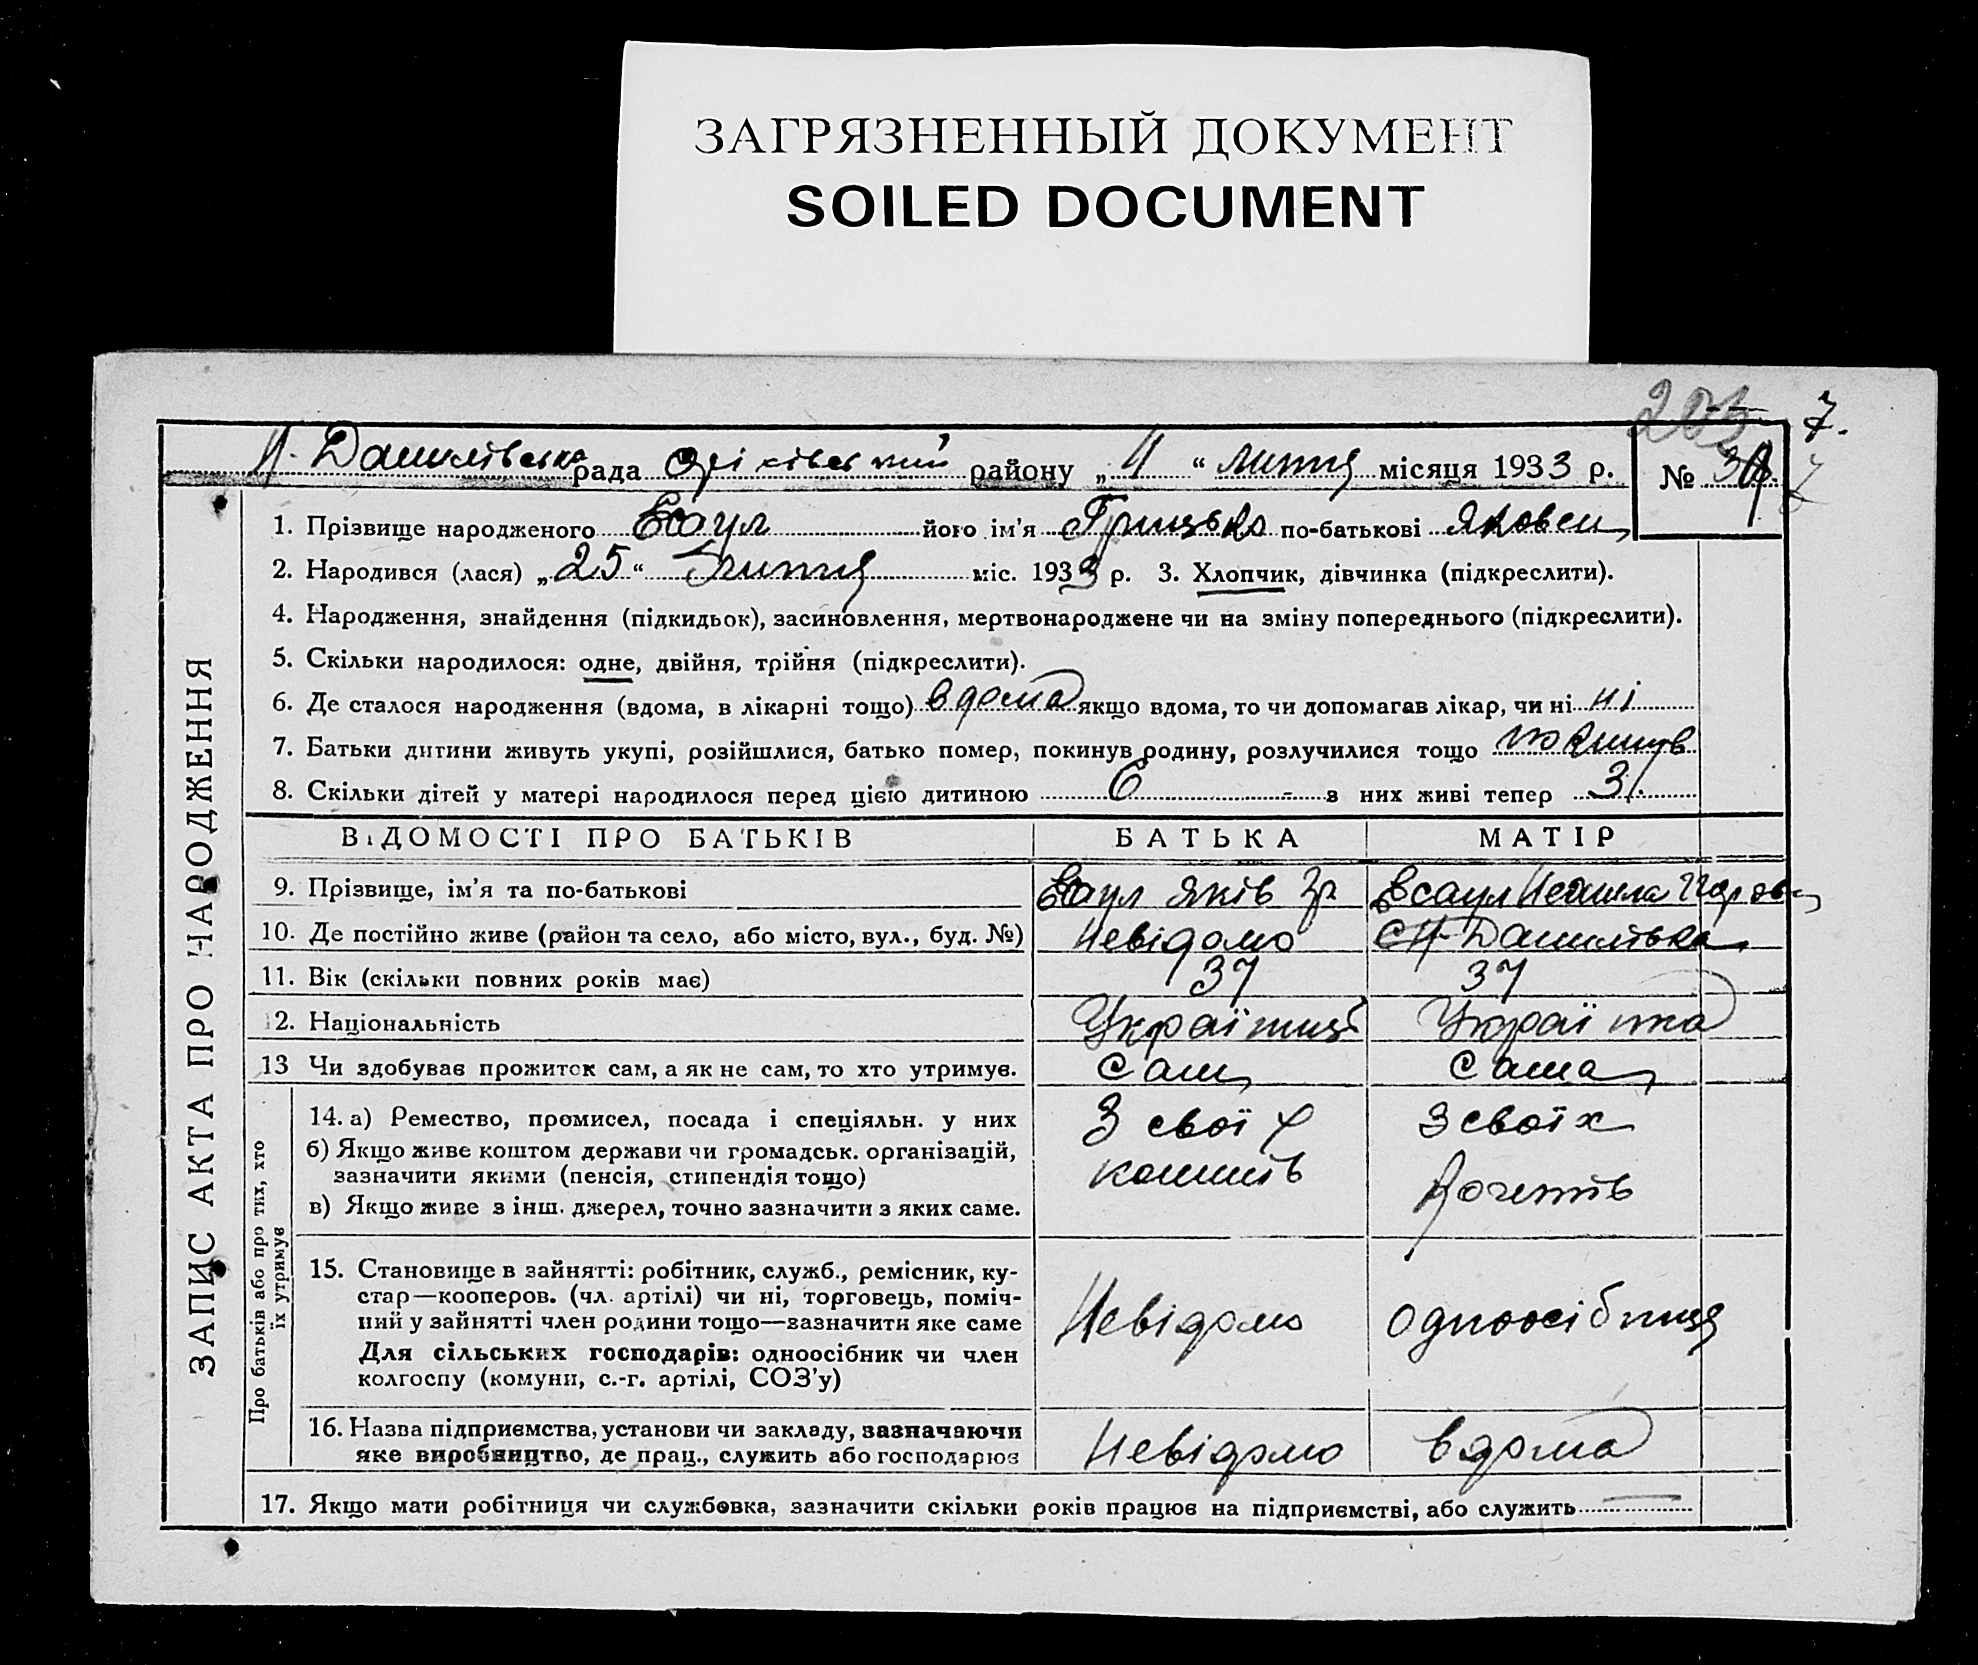 ЗАГРЯЗНЕННЫЙ ДОКУМЕНТ
SOILED DOCUMENT
7.
Н. Данилівська рада Оріхівський району „ 4 “ липня місяця 1933 р. №
1. Прізвище народженого Есаул його ім’я Грицько по-батькові Яковен
2. Народився (лася) „ 25 “ липня міс. 1933 р. 3. Хлопчик, дівчинка (підкреслити).
4. Народження, знайдення (підкидьок), засиновлення, мертвонароджене чи на зміну попереднього (підкреслити).
5. Скільки народилося: одне, двійня, трійня (підкреслити).
6. Де сталося народження (вдома, в лікарні тощо) вдома якщо вдома, то чи допомагав лікар, чи ні ні
7. Батьки дитини живуть укупі, розійшлися, батько помер, покинув родину, розлучилися тощо покинув
8. Скільки дітей у матері народилося перед цією дитиною 6 з них живі тепер 3
ЗАПИС АКТА ПРО НАРОДЖЕННЯ
ВІДОМОСТІ ПРО БАТЬКІВ БАТЬКА МАТІР
9. Прізвище, ім’я та по-батькові Есаул Яків Гр Есаул
10. Де постійно живе (район та село, або місто, вул., буд. №) Невідомо Н Данилівка
11. Вік (скільки повних років має) 37 37
12. Національність Українець Українка
13 Чи здобуває прожиток сам, а як не сам, то хто утримує. Сам Сама
Про батьків або про тих, хто їх утримує
14. а) Ремество, промисел, посада і спеціяльн. у них З своїх З своїх
б) Якщо живе коштом держави чи громадськ. організацій, коштів
зазначити якими (пенсія, стипендія тощо)
в) Якщо живе з інш. джерел, точно зазначити з яких саме.
15. Становище в зайнятті: робітник, служб., ремісник, ку-
стар—кооперов. (чл. артілі) чи ні, торговець, поміч-
ний у зайнятті член родини тощо—зазначити яке саме Невідомо одноосібниця
Для сільських господарів: одноосібник чи член
колгоспу (комуни, с.-г. артілі, СОЗ’у)
16. Назва підприємства, установи чи закладу, зазначаючи
яке виробництво, де прац., служить або господарює Невідомо вдома
17. Якщо мати робітниця чи службовка, зазначити скільки років працює на підприємстві, або служить —